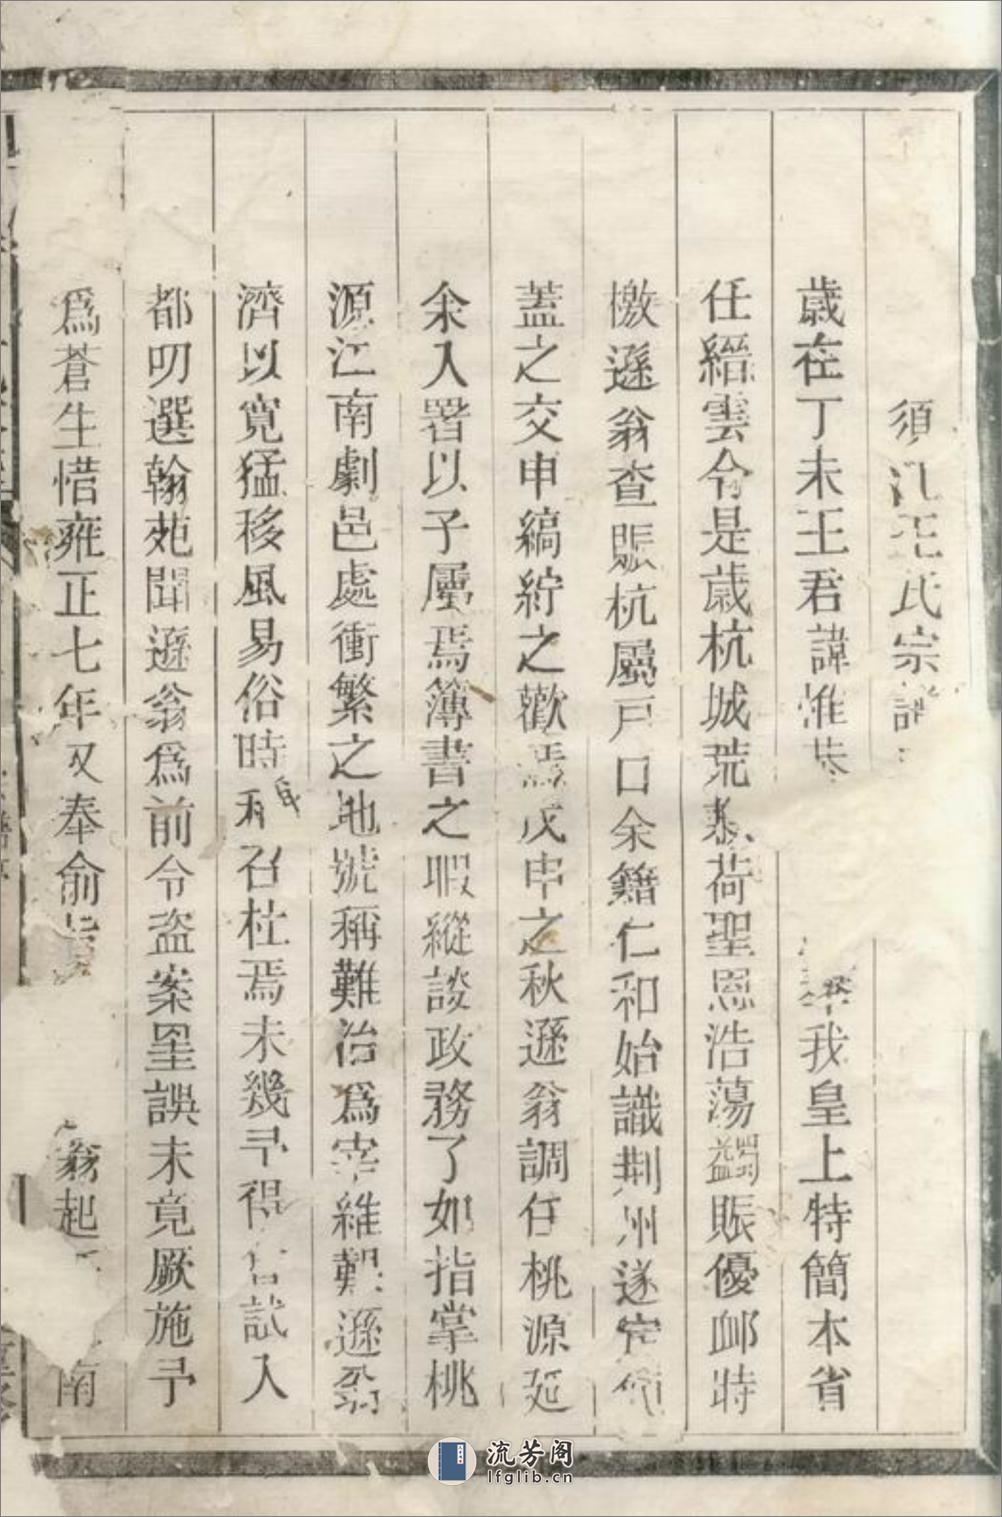 須江王氏宗譜
歲在丁未王君諱惟 我皇上特簡本省
任縉雲令是歲杭城荒歉荷聖恩浩蕩蠲賑優卹時
檄遜翁查賑杭屬戶口余籍仁和始識荆州遂定傾
蓋之交申縞紵之歡焉戊申之秋遜翁調任桃源延
余入署以子屬焉簿書之暇縱談政務了如指掌桃
源江南劇邑處衝繁之地號稱難治爲宰維艱遜翁
濟以寛猛移風易俗時稱召杜焉未幾予得 試入
都叨選翰苑聞遜翁爲前令盜案罣誤未竟厥施予
爲蒼生惜雍正七年又奉俞 翁起 南
流芳阁
lfglib.cn